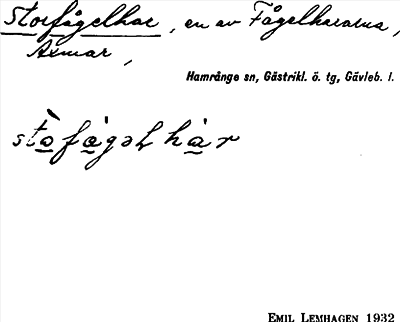 Storfågelhar, en av Fågelhararna,
Axmar,
Hamrånge sn, Gästrikl. ö. tg, Gävleb. l.
stòfågəɫhàr
EMIL LEMHAGEN 1932